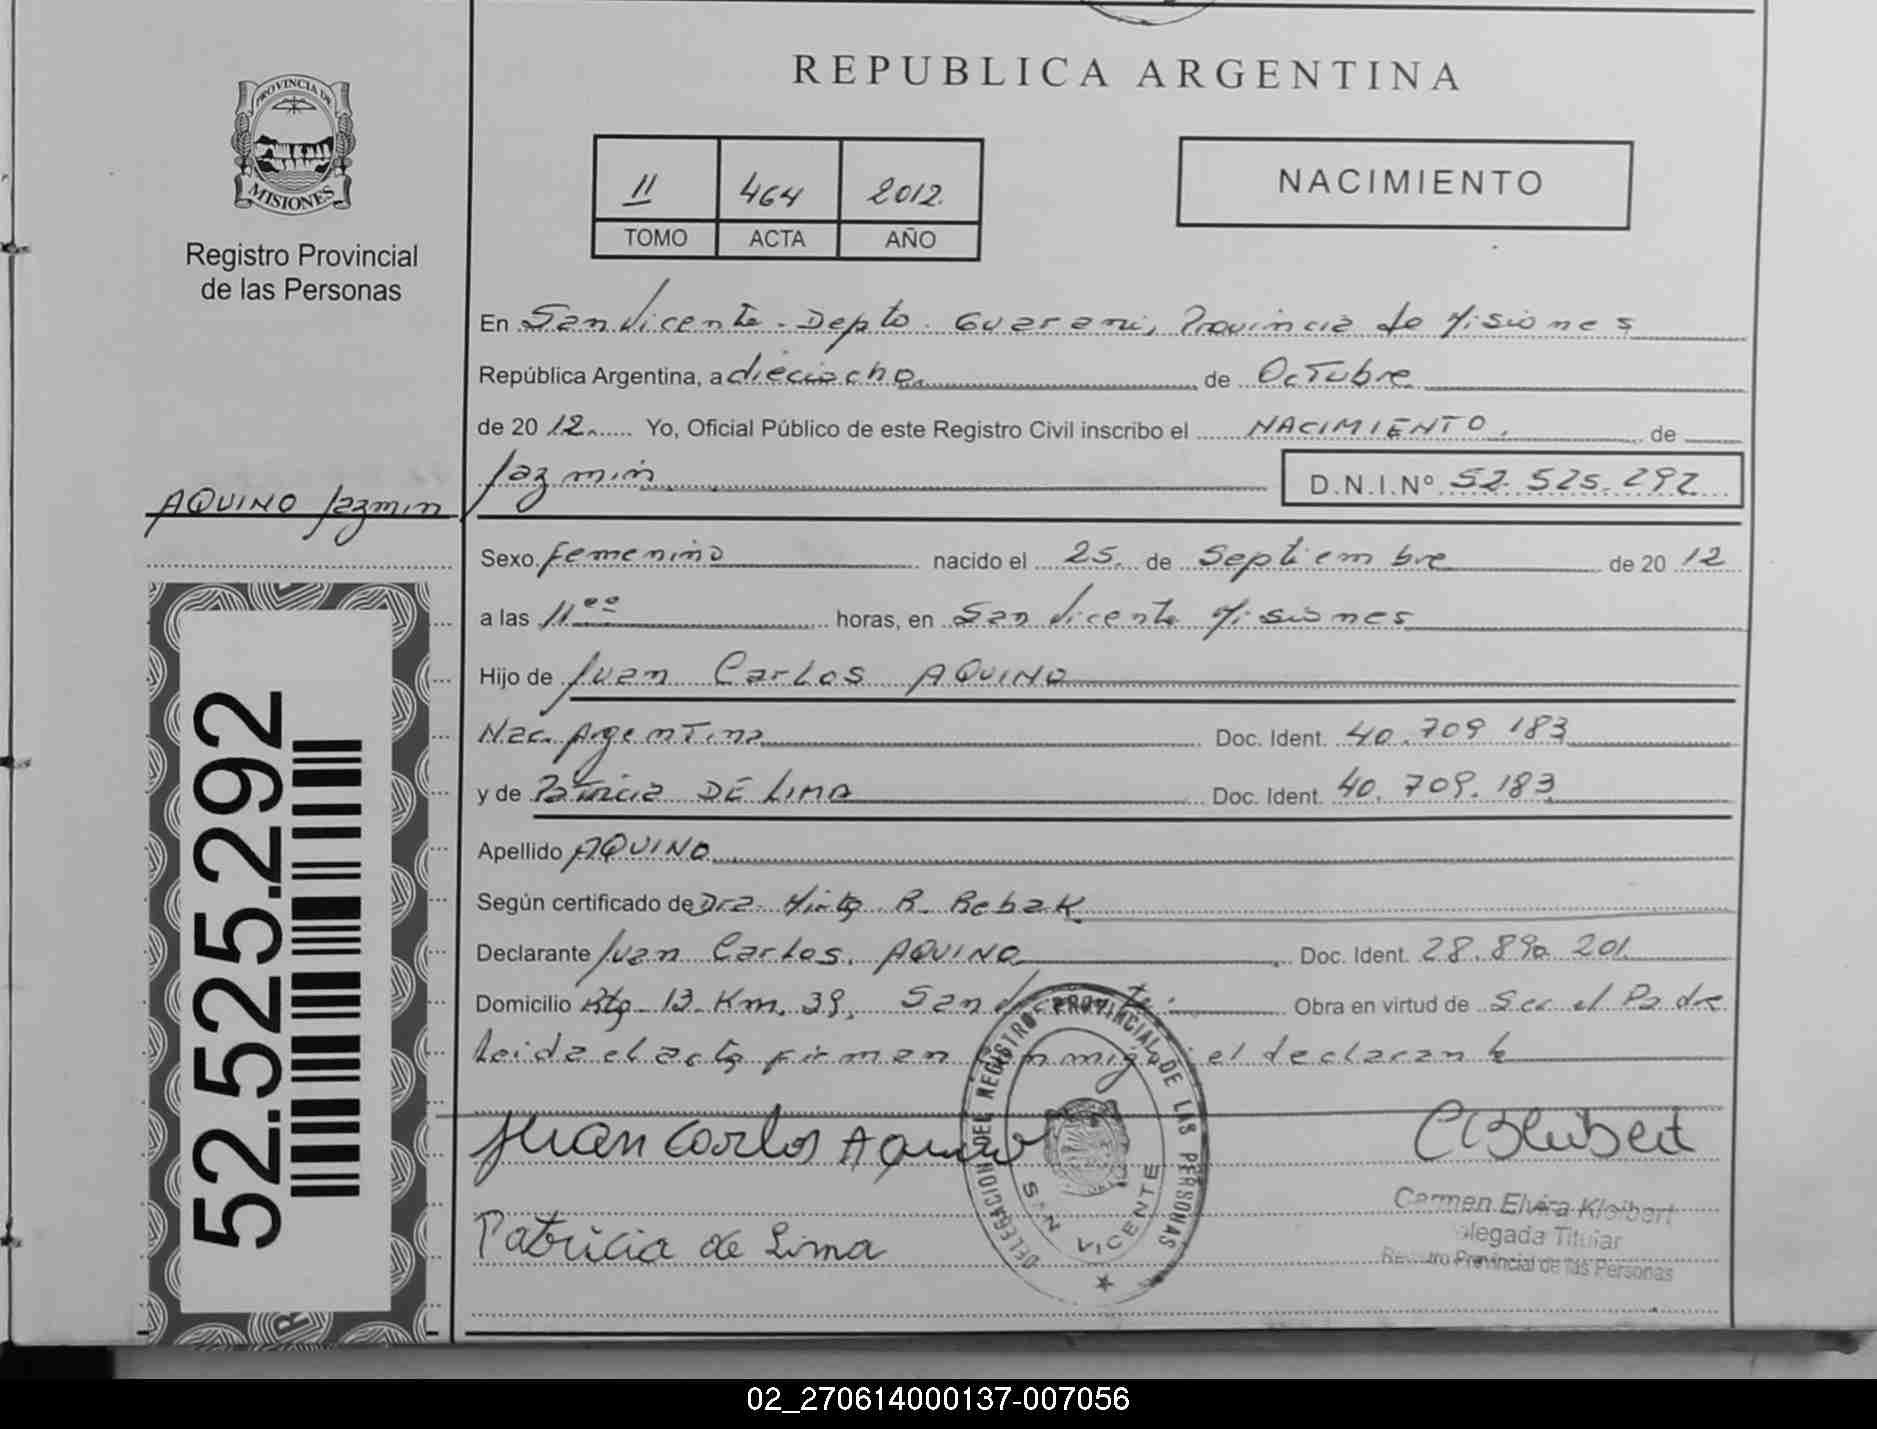 REPUBLICA ARGENTINA
PROVINCIA DE
MISIONES
Registro Provincial
de las Personas
II 464 2012.
TOMO ACTA AÑO
NACIMIENTO
En San Vicente - Depto. Guarani, Provincia de Misiones
República Argentina, a dieciocho de Octubre
de 20 12. Yo, Oficial Público de este Registro Civil inscribo el NACIMIENTO. de
Jazmin D.N.I.Nº 52.525.292
AQUINO Jazmin
Sexo Femenino nacido el 25. de Septiembre de 20 12
a las 11 ºº horas, en San Vicente Misiones
Hijo de Juan Carlos AQUINO
Nac. Argentina Doc. Ident. 40.709 183
y de Patricia DE LIMA Doc. Ident. 40.709.183
Apellido AQUINO
Según certificado de Dra. Mirta R. Rebak
Declarante Juan Carlos AQUINO Doc. Ident. 28.890.201
Domicilio Rta. 13. Km. 39, San Vicente. Obra en virtud de Ser el Padre
Leida el acta firman Conmigo el declarante
Juan Carlos Aquino
Patricia de Lima
DELEGACION DEL REGISTRO PROVINCIAL DE LAS PERSONAS
SAN VICENTE
Carmen Elvira Kleibert
Delegada Titular
Registro Provincial de las Personas
52.525.292
02_270614000137-007056